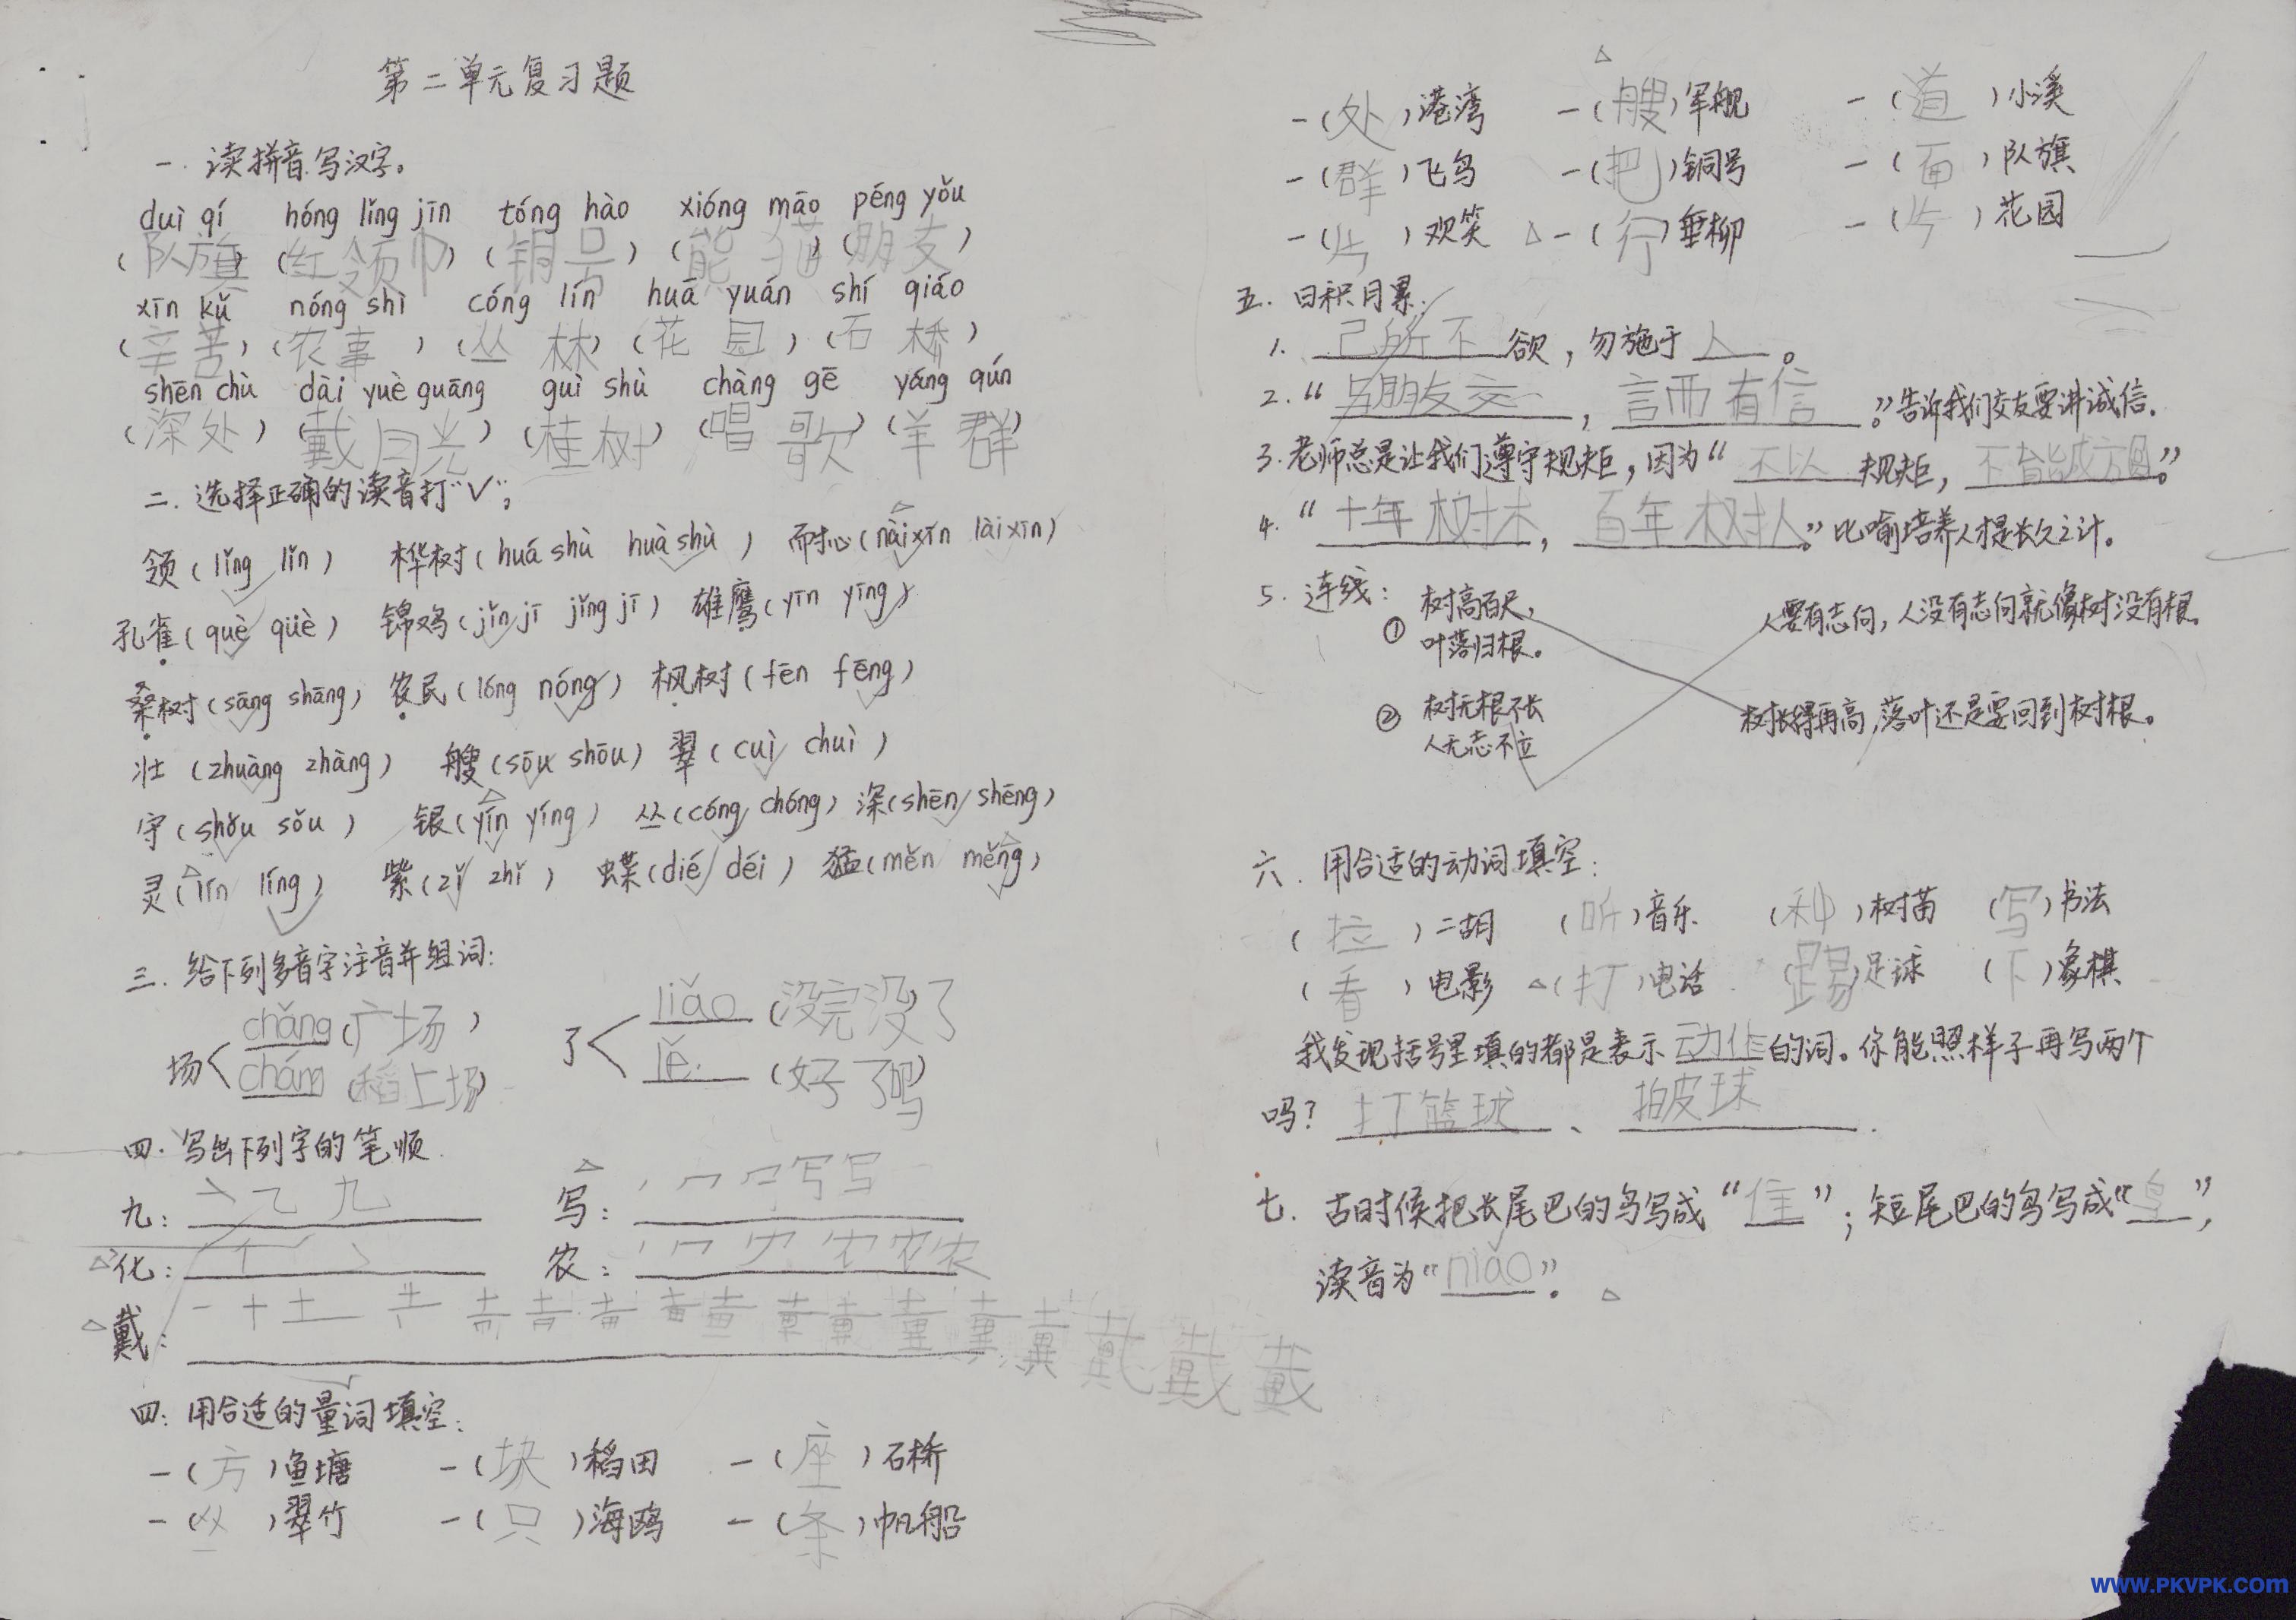 第二单元复习题
一. 读拼音写汉字。
duì qí hóng lǐng jīn tóng hào xióng māo péng yǒu
(队旗) (红领巾) (铜号) (熊猫) (朋友)
xīn kǔ nóng shì cóng lín huā yuán shí qiáo
(辛苦) (农事) (丛林) (花园) (石桥)
shēn chù dài yuè guāng guì shù chàng gē yáng qún
(深处) (戴月光) (桂树) (唱歌) (羊群)
二. 选择正确的读音打“√”。
领(lǐng lǐn) 桦树(huá shù huà shù) 耐心(nài xīn lài xīn)
孔雀(què qüè) 锦鸡(jǐn jī jǐng jī) 雄鹰(yīn yīng)
桑树(sāng shāng) 农民(lóng nóng) 枫树(fēn fēng)
壮(zhuàng zhàng) 艘(sōu shōu) 翠(cuì chuì)
守(shǒu sǒu) 银(yín yíng) 丛(cóng chóng) 深(shēn shēng)
灵(lín líng) 紫(zǐ zhǐ) 蝶(dié déi) 猛(měn měng)
三. 给下列多音字注音并组词:
场 chǎng(广场) 了 liǎo(没完没了)
cháng(稻上场) le(好了吗)
四. 写出下列字的笔顺.
九: 九 写: 丶 冖 写 写
化: 农: 丶 冖 农 农
戴: 一 十 土 戴 戴
四: 用合适的量词填空:
一(方)鱼塘 一(块)稻田 一(座)石桥
一(丛)翠竹 一(只)海鸥 一(条)帆船
一(处)港湾 一(艘)军舰 一(道)小溪
一(群)飞鸟 一(把)铜号 一(面)队旗
一(片)欢笑 一(行)垂柳 一(片)花园
五. 日积月累:
1. 己所不欲,勿施于人。
2. “与朋友交,言而有信。”告诉我们交友要讲诚信.
3. 老师总是让我们遵守规矩,因为“不以规矩,不能成方圆。”
4. “十年树木,百年树人。”比喻培养人才是长久之计。
5. 连线:
① 树高百尺, 人要有志向,人没有志向就像树没有根。
叶落归根。
② 树无根不长 树长得再高,落叶还是要回到树根。
人无志不立
六. 用合适的动词填空:
(拉)二胡 (听)音乐 (种)树苗 (写)书法
(看)电影 (打)电话 (踢)足球 (下)象棋
我发现括号里填的都是表示动作的词。你能照样子再写两个
吗? 打篮球、拍皮球.
七. 古时候把长尾巴的鸟写成“隹”;短尾巴的鸟写成“鸟”,
读音为“niǎo”。
www.PKVPK.com